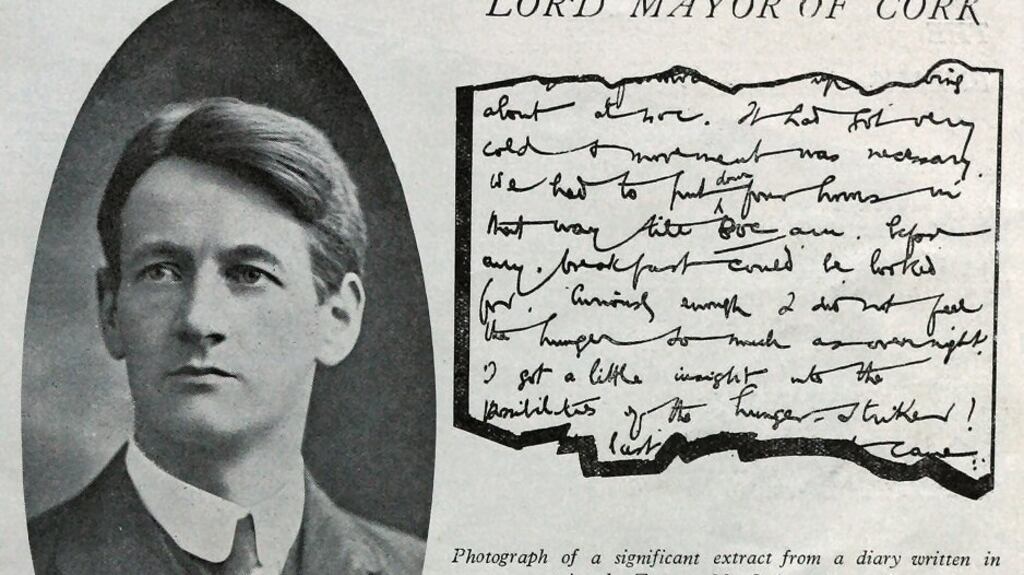 LORD MAYOR OF CORK
about
It had got very
cold & movement was necessary.
We had to put down four hours in
that way till 8oc am. before
any breakfast could be looked
for. Curiously enough I did not feel
the hunger so much as overnight.
I got a little insight into the
possibilities of the hunger-striker!
last came
Photograph of a significant extract from a diary written in